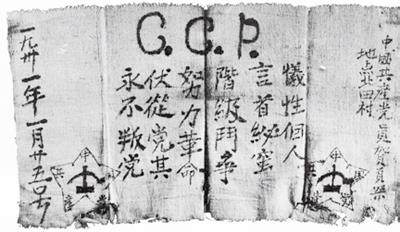 C.C.P.
中國共產党員賀頁朵
地点北田村
犧牲個人
言首秘蜜
階級鬥爭
努力革命
伏從党其
永不叛党
一九卅一年一月廿五号